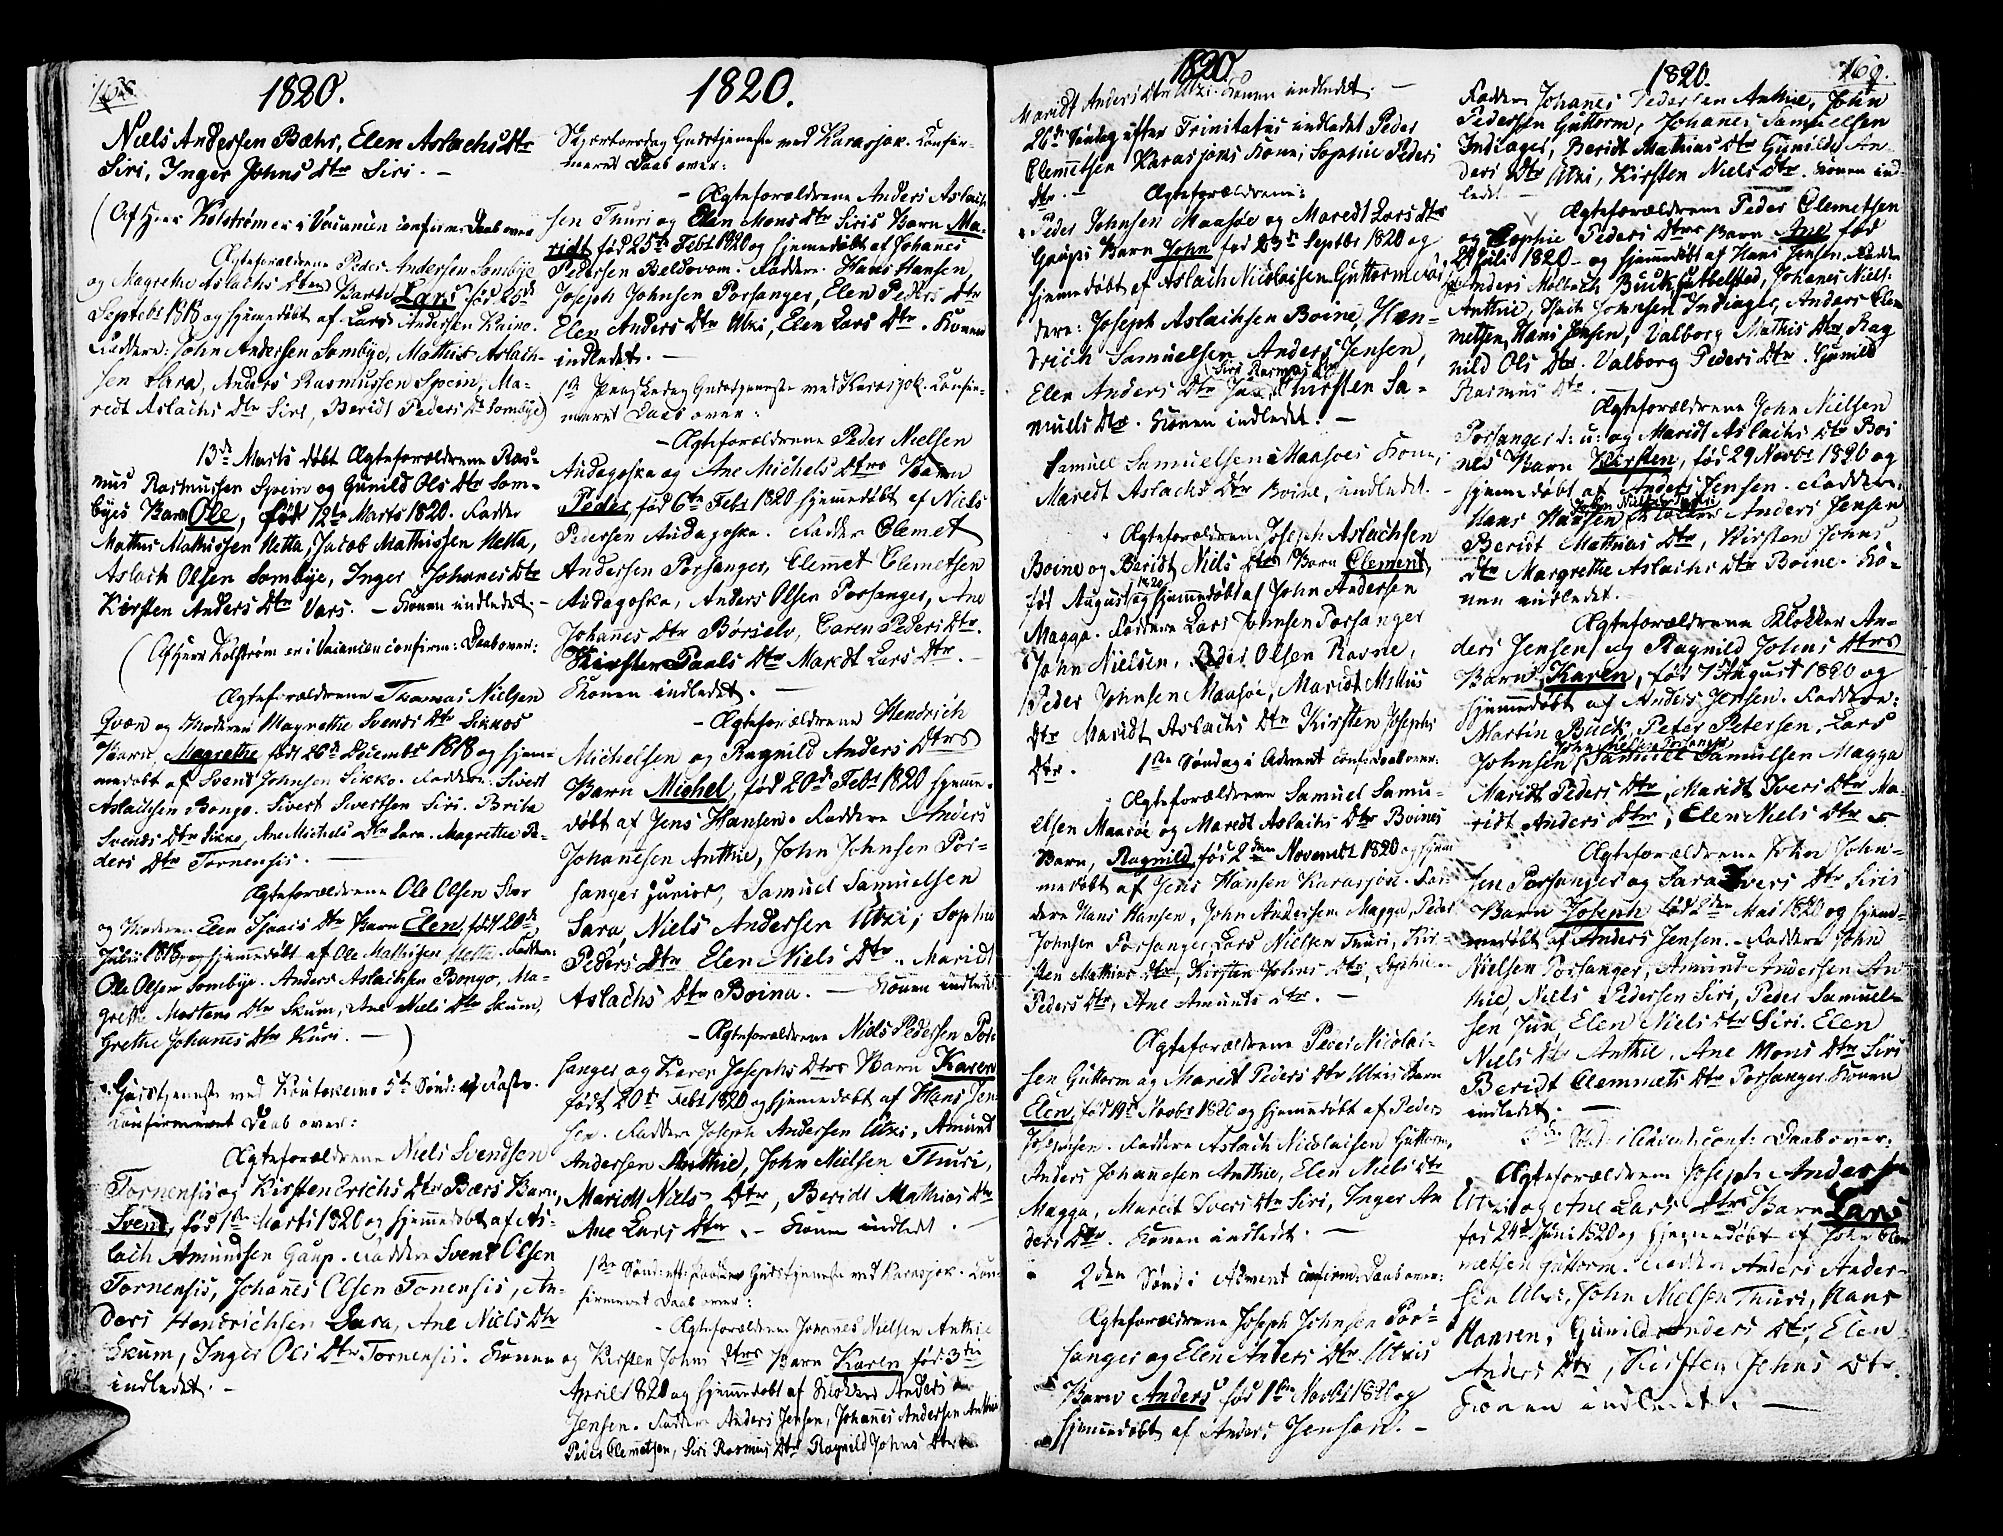 168
1820.
Niels Andersen Bæhr, Elen Aslachs Dtr
Siri, Inger Johns Dtr Siri. -
(Af Herr Kolstrøm er i Vaiunien confirm: Daab over
Ægteforældrene Peder Andersen Sombye
og Magrethe Aslachs Dtrs Barn Lars fød 25de
Septebr 1818 og hjemmedøbt af Lars Andersen Kaino.
Faddere: John Andersen Sombye, Mathis Aslach-
sen Sara, Anders Rasmussen Spein, Ma-
redt Aslachs Dtr Siri, Beridt Peders Dtr Sombye)
13de Marts døbt Ægteforældrene Ras-
mus Rasmussen Spein og Gunild Ols Dtr Som-
byes Barn Ole, fød 12te Marts 1820. Fadder
Mathis Mathissen Hetta, Jacob Mathissen Hetta,
Aslach Olsen Sombye, Inger Johanes Dtr
Kirsten Anders Dtr Vars. - Konen indledet. -
(Af Herr Kolstrøm er i Vaiunien confirm: Daab over:
Ægteforældrene Thomas Nielsen
Qvæn og Moderen Magrethe Svends Dtr Sikkos
Barn, Magrethe fød 26de Decembr 1818 og hjem-
medøbt af Svend Johnsen Sikko. Faddere: Sivert
Aslachsen Bongo. Sivert Sivertsen Siri. Brita
Svends Dtr Sikko, Ane Michels Dtr Sara. Magrethe Pe-
ders Dtr Tornensis. -
Ægteforældrene Ole Olsen
og Moderen Elen Isaacs Dtr Barn Elen, fød 20de
Julii 1818 og hjemmedøbt af Ole Mathisen Hetta. Faddere:
Ole Olsen Sombye. Anders Aslachsen Bongo, Ma-
grethe Mortens Dtr Skum, Ane Niels Dtr Skum,
Grethe Johannes Dtr Kuri. - )
Gudstjeneste ved Koutokeino 5te Sønd: af Faste.
Confirmeret Daab over:
Ægteforældrene Niels Svendsen
Tornensis og Kirsten Erichs Dtr Bæhrs Barn
Svend, fød 1ste Marts 1820 og hjemmedøbt af As-
lach Amundsen Gaup. Faddere Svend Olsen
Tornensis, Johanes Olsen Tonensis, An-
ders Hendrichsen Sara, Ane Niels Dtr
Skum, Inger Ols Dtr Tornensis. Konen
indledet. -
1820.
Skjærtorsdag Gudstjeneste ved Karasjok. Confir-
meret Daab over:
- Ægteforældrene Anders Aslach-
sen Thuri og Elen Mons Dtr Siris Barn Ma-
ridt fød 25de Febr 1820 og hjemmedøbt af Johanes
Pedersen Beldovom. Faddere. Hans Hansen,
Joseph Johnsen Porsanger, Elen Peders Dtr
Elen Anders Dtr Utzi, Elen Lars Dtr. Konen
indledet. -
1ste Paaskedag Gudstjeneste ved Karasjok. Confir-
meret Daab over:
- Ægteforældrene Peder Nielsen
Audagoska og Ane Michels Dtrs Barn
Peder, fød 6te Febr 1820 hjemmedøbt af Niels
Pedersen Audagoska. Fadder Clemet
Andersen Porsanger, Clemet Clemetsen
Audagoska, Anders Olsen Porsanger, Ane
Johanes Dtr Børselv, Caren Peders Dtr.
Kirsten Paals Dtr Maredt Lars Dtr. -
Konen indledet. -
- Ægteforældrene Hendrich
Michelsen og Ragnild Anders Dtrs
Barn Michel, fød 20de Febr 1820 hjemme-
døbt af Jens Hansen. Faddere Anders
Johanesen Anthie, John Johnsen Por-
sanger Junior, Samuel Samuelsen
Sara, Niels Andersen Utzi, Sophie
Peders Dtr Elen Niels Dtr. Maridt
Aslachs Dtr Boina. - Konen indledt.
- Ægteforældrene Niels Pedersen Por-
sanger og Karen Josephs Dtrs Barn Karen
født 20de Febr 1820 og hjemmedøbt af Hans Jen-
sen. Faddere Joseph Andersen Utzi, Amund
Andersen Anthie, John Nielsen Thuri,
Maridt Niels Dtr, Beridt Mathias Dtr
Ane Lars Dtr. - Konen indledt. -
1ste Sønd: eft: Paaske Gudstjeneste ved Karasjok. Con-
firmeret Daab over:
- Ægteforældrene Johanes Nielsen Anthie
og Kirsten Johns Dtrs Barn Karen fød 3die
April 1820 og hjemmedøbt af Klokker Anders
Jensen. Faddere Anders Jensen, Johannes Andersen Anthie
Peder Clemetsen, Siri Rasmus Dtr Ragnild Johns Dtr
1820
Maridt Anders Dtr Utzi. Konen indledet. -
26de Søndag efter Trinitatis indledet Peder
Clemetsen Karasjoks Kone; Sophie Peders
Dtr. - Ægteforældrene:
Peder Johnsen Maasøe og Maredt Lars Dtr
Gaups Barn John fød 23de Septbr 1820 og
hjemmedøbt af Aslach Nicolaisen Guttorm. Fad-
dere: Joseph Aslachsen Boine, Hen-
drich Samuelsen Anders Jensen,
Siri Rasmus Dtr
Elen Anders Dtr Kirsten Sa-
muels Dtr. Konen indledet. -
Samuel Samuelsen Maasøes Kone,
Maredt Aslachs Dtr Boine, indledet. -
Ægteforældrene Joseph Aslachsen
Boine og Beridt Niels Dtrs Barn Clement,
fød August 1820 og hjemmedøbt af John Andersen
Magga. Faddere Lars Johnsen Porsanger
John Nielsen, Peder Olsen Ravne,
Peder Johnsen Maasøe, Maridt Mathis
Dtr Maridt Aslachs Dtr Kirsten Josephs
Dtr. 1ste Søndag i Advent conf: Daab over:
Ægteforældrene Samuel Samu-
elsen Maasøe og Maredt Aslachs Dtr Boines
Barn, Ragnild, fød 2den Novembr 1820 og hjem-
medøbt af Jens Hansen Karasjok. Fad-
dere Hans Hansen, John Andersen Magga, Peder
Johnsen Porsanger, Lars Nielsen Thuri, Kir-
sten Mathias Dtr, Kirsten Johns Dtr, Sophie
Peders Dtr, Ane Amunds Dtr. -
Ægteforældrene Peder Nicolai-
sen Guttorm og Maredt Peders Dtr Utzis Barn
Elen, fød 19de Novbr 1820 og hjemmedøbt af Peder
Josephsen. Faddere Aslach Nicolaisen Guttorm,
Anders Johannesen Anthie, Elen Niels Dtr
Magga, Mareit Ivers Dtr Siri, Inger An-
ders Dtr. Konen indledt. -
2den Sønd i Advent confirm: Daab over:
Ægteforældrene Joseph Johnsen Por-
sanger og Elen Anders Dtr Utzis
Barn Anders fød 1ste Novbr 1820 og
hjemmedøbt af Anders Jensen. -
1820.
169.
Faddere Johannes Pedersen Anthie, John
Pedersen Guttorm, Johanes Samuelsen
Indiager, Beridt Mathias Dtr Gunild An-
ders Dtr Utzi, Kirsten Niels Dtr. Konen ind-
ledt. -
Ægteforældrene Peder Clemetsen
og Sophie Peders Dtrs Barn Ane fød
2 Juli 1820 - og hjemmedøbt af Hans Jensen. Fadde
Anders Molbach Buck, Johanes Niels:
Anthie, Isach Johnsen Indiager, Anders Cle-
metsen, Hans Jensen, Valborg Mathis Dtr Rag
nild Ols Dtr. Valborg Peders Dtr. Gunild
Rasmus Dtr.
Ægteforældrene John Nielsen
Porsanger d: u: og Maridt Aslachs Dtr Boi
nes Barn Kirsten, fød 29 Novbr 1820 og
hjemmedøbt af Anders Jensen. Faddere:
Hans Hansen Klokker Anders Jensen
Beridt Mathias Dtr, Kirsten Johns
Dtr Margrethe Aslachs Dtr Boine. Ko-
nen indledet.
Ægteforældrene Klokker An-
ders Jensen og Ragnild Johns Dtrs
Barn, Karen, fød 7 August 1820 og
hjemmedøbt af Anders Jensen. Faddere:
Martin Buck, Peter Petersen, Lars
John Nielsen Porsanger
Johnsen, Samuel Samulsen Magga
Maridt Peders Dtr, Maridt Ivers Dtr Ma-
ridt Anders Dtr, Elen Niels Dtr
Ægteforældrene John John-
sen Porsanger og Sara Ivers Dtr Siris
Barn Joseph fød 2den Mai 1820 og hjem-
medøbt af Anders Jensen. - Faddere John
Nielsen Porsanger, Amund Andersen An-
thie, Niels Pedersen Siri, Peder Samuel-
sen Jun, Elen Niels Dtr Siri. Elen
Niels Dtr Anthie. Ane Mons Dtr Siri
Beridt Clemmets Dtr Porsanger. Konen
indledet. -
3die Sønd: i Advent conf: Daab over:
Ægteforældrene Joseph Andersen
Utzi og Ane Lars Dtrs Barn Lars
fød 24de Juni 1820 og hjemmedøbt af John Cle
metsen Guttorm. Faddere Anders Ander-
sen Utzi, John Nielsen Thuri, Hans
Hansen, Gunild Anders Dtr, Elen
Anders Dtr, Kirsten Johns Dtr.
Konen indledet. -